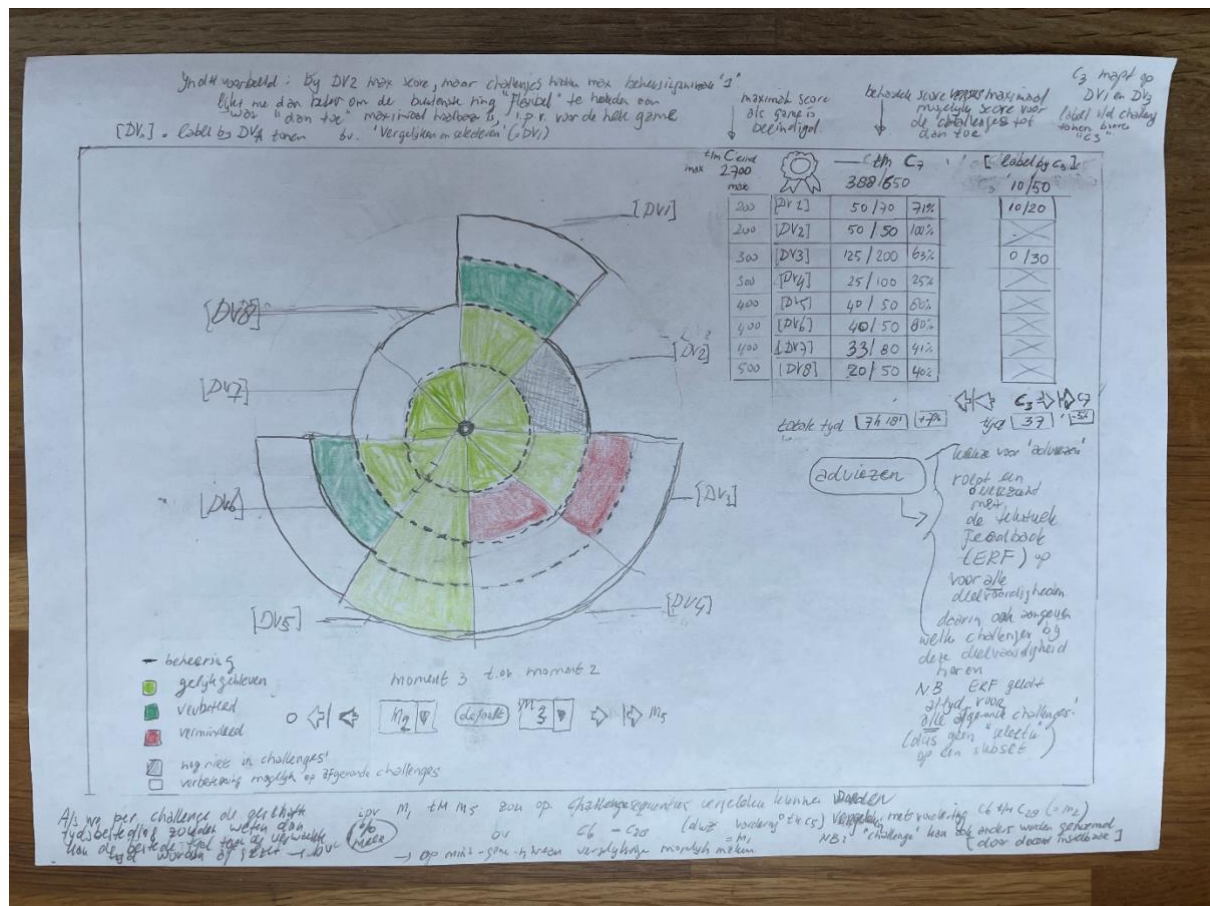 In dit voorbeeld: by DV2 max score, maar challenges hadden max beheersingsniveau "1"
lijkt me dan beter om de buitenste ring "flexibel" te houden aan
wat "dan toe" maximaal haalbaar is, i.p.v. voor de hele game
[DV1] = label by DV1 tonen bv. 'Vergelijken en selecteren' (DV1)
maximale score
als game is
beeindigd.
behaalde score versus maximaal
mogelijke score voor
de challenges tot
dan toe
C3 mapt op
DV1 en DV3
label v/d challenge
tonen
"C3"
t/m C eind
max 2700
t/m C7
[label by C3]
388/650
C3 10/50
max
200 [DV1] 50/70 71% 10/20
200 [DV2] 50/50 100%
300 [DV3] 125/200 63% 0/30
300 [DV4] 25/100 25%
400 [DV5] 40/50 80%
400 [DV6] 40/50 80%
400 [DV7] 33/80 41%
500 [DV8] 20/50 40%
C3 C7
totale tyd 7h 18' +7% tyd 37' -5%
[DV1]
[DV2]
[DV3]
[DV4]
[DV5]
[DV6]
[DV7]
[DV8]
adviezen
keuze voor 'adviezen'
roept een
overzicht
met
de tekstuele
Feedback
(ERF) op
voor alle
deelvaardigheden
daarin ook aangeven
welke challenges by
deze deelvaardigheid
horen
NB ERF geldt
altyd voor
alle afgeronde challenges.
(dus geen "selectie"
op een subset)
beheersing
gelijk gebleven
verbeterd
verminderd
nog niet in challenges'
verbetering mogelijk op afgeronde challenges
moment 3 t.o.v. moment 2
0 M2 default M3 M5
Als we per challenge de geschatte
tydsbesteding zouden weten dan
kan de bestede tyd tegen de verwachte
tyd worden afgezet → bv. % meer
ipv M1 t/m M5 zou op challengesequenties vergeleken kunnen worden
bv C6 - C20 (dus vordering t/m C5) vergeleken met vordering C6 t/m C20 (= M2)
= M1
NB: "challenge" kan ook anders worden genoemd
[door docent
→ op mini-game-niveau vergelyking mogelyk maken